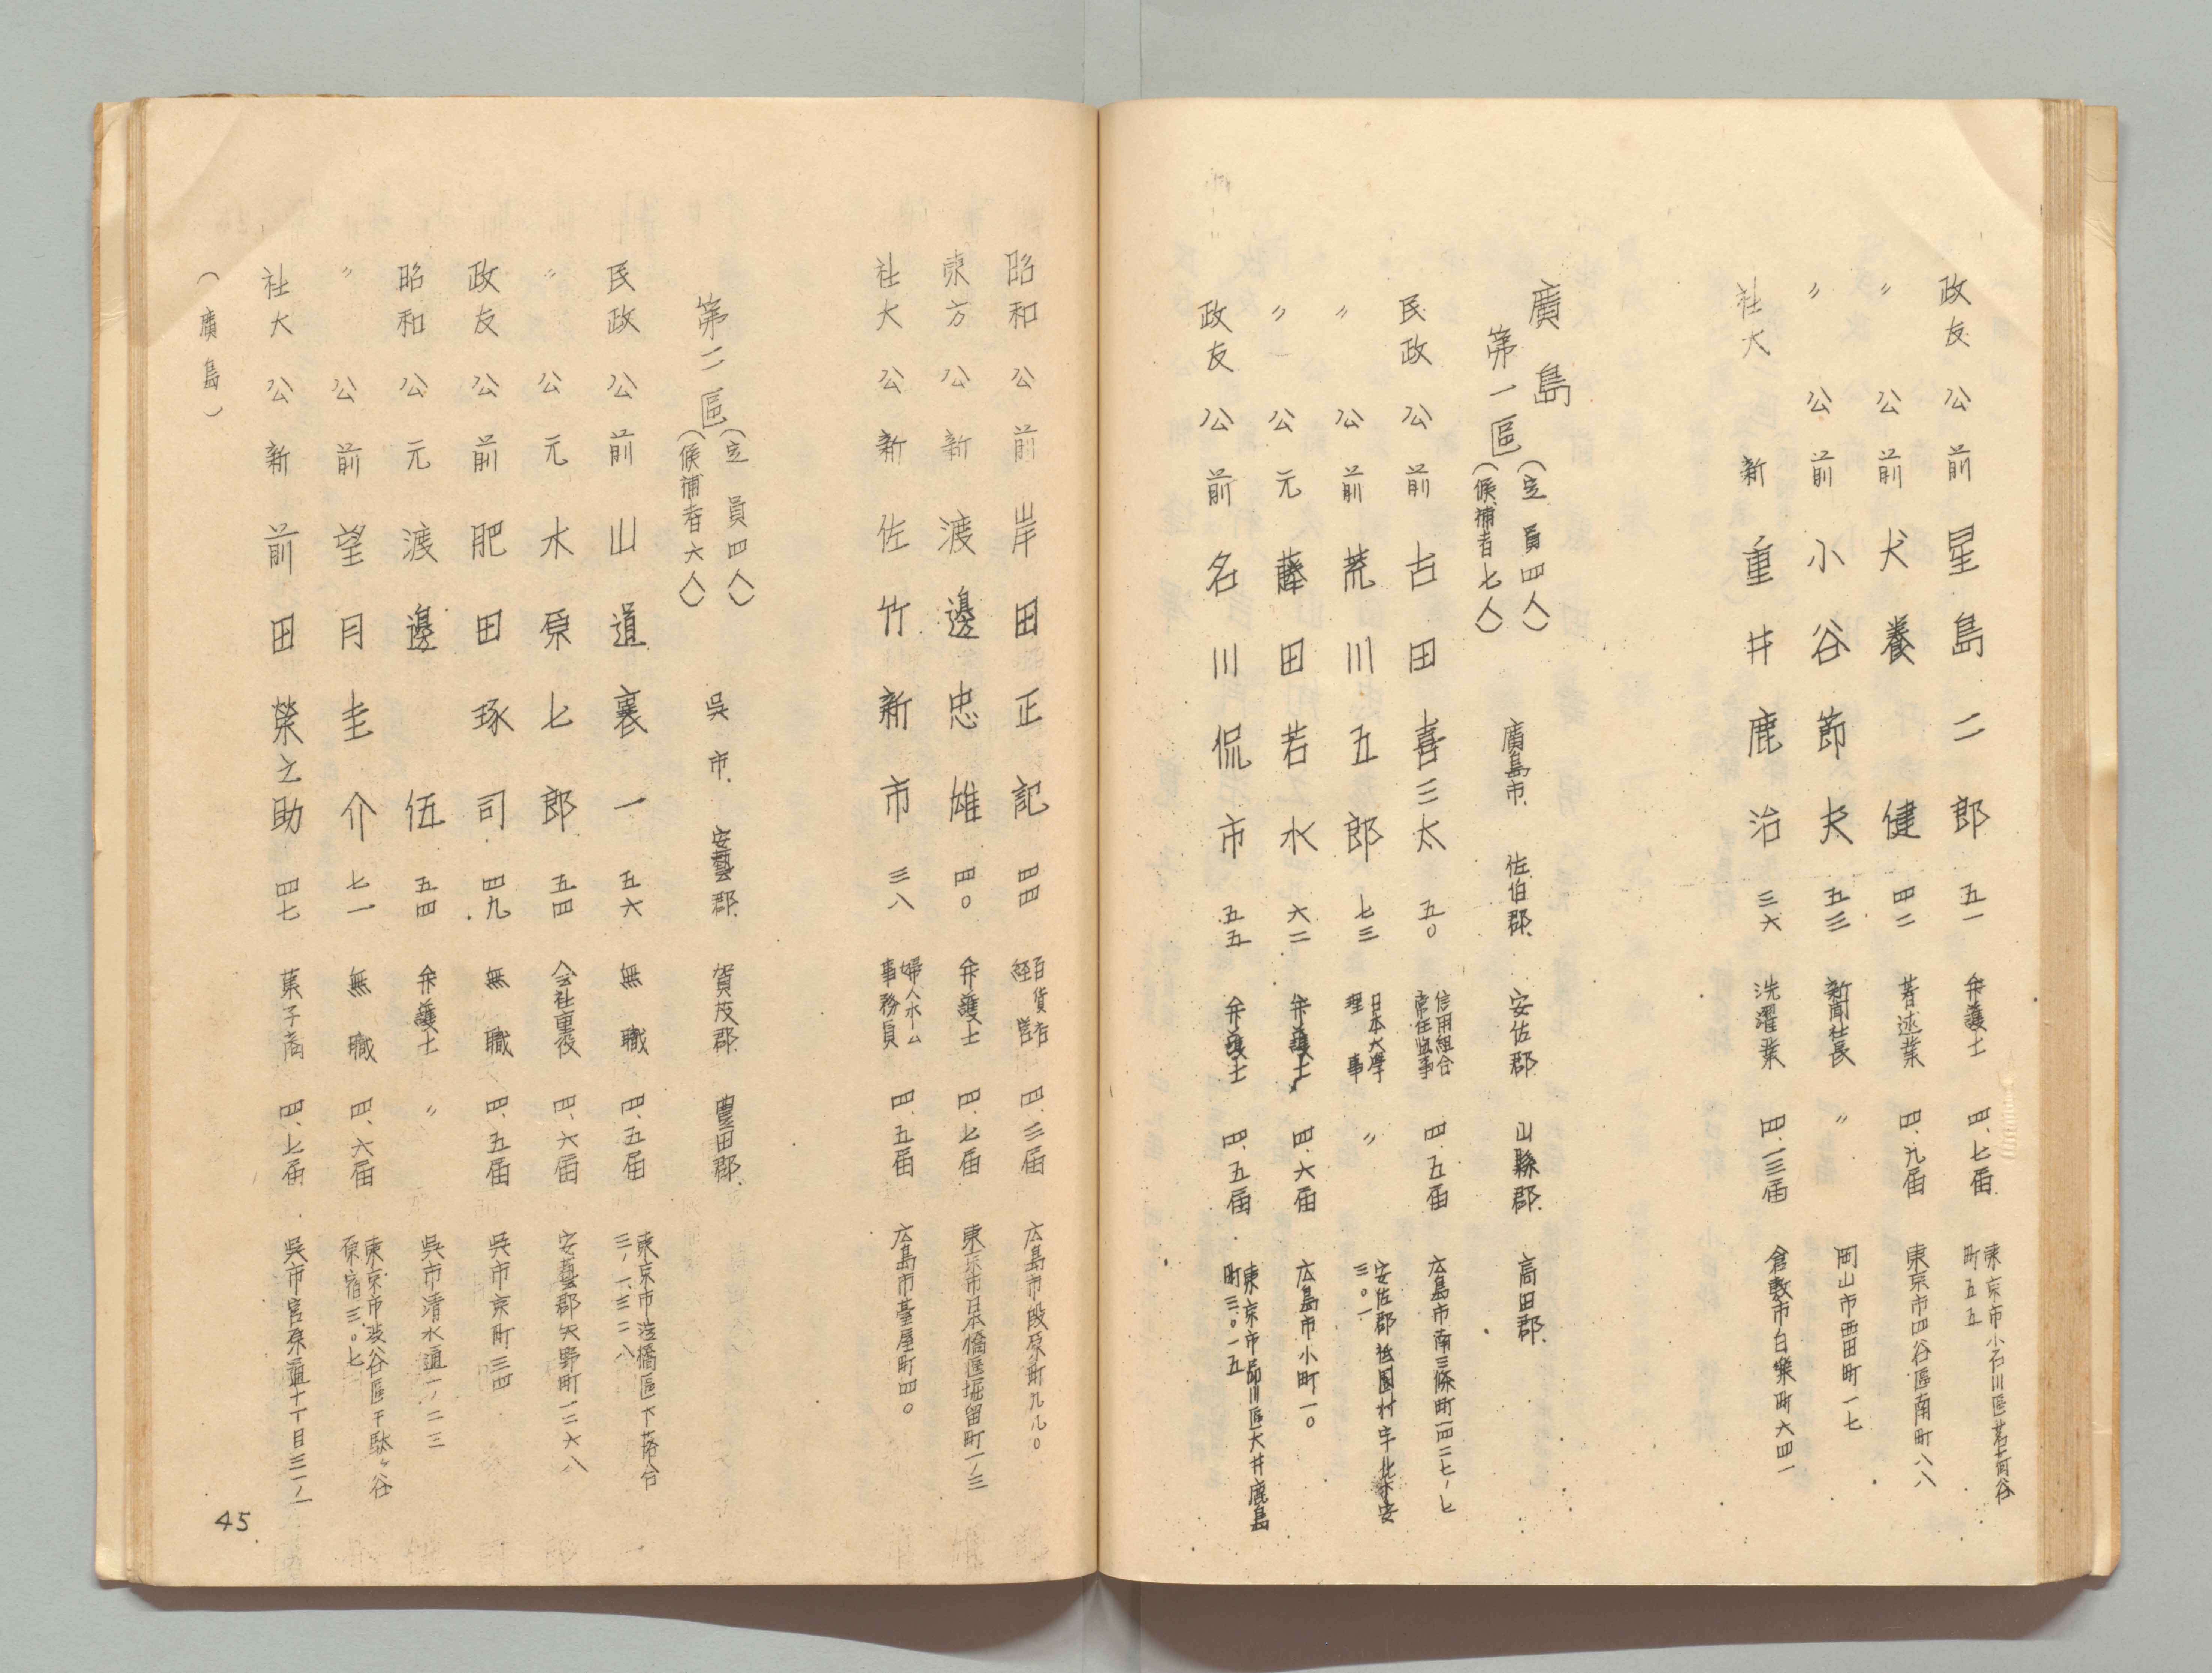 政友 公 前 星島二郎 五一 弁護士 四、七届 東京市小石川區茗荷谷町五五
〃 公 前 犬養健 四二 著述業 四、九届 東京市四谷區南町八八
〃 公 前 小谷節夫 五三 新聞社長 〃 岡山市西田町一七
社大 新 重井鹿治 三六 洗濯業 四、一三届 倉敷市白樂町六四一
廣島
第一區(定員四人)(候補者七人) 廣島市、佐伯郡、安佐郡、山縣郡、高田郡、
民政 公 前 古田喜三太 五〇 信用組合常任監事 四、五届 広島市南三篠町一四二七ノ七
〃 公 前 荒川五郎 七三 日本大學理事 〃 安佐郡祇園村字北下安三〇一
〃 公 元 藤田若水 六二 弁護士 四、六届 広島市小町一〇
政友 公 前 名川侃市 五五 弁護士 四、五届 東京市品川區大井鹿島町三〇一五
昭和 公 前 岸田正記 四四 百貨店経営 四、三届 広島市段原町九八〇
東方 公 新 渡邊忠雄 四〇 弁護士 四、七届 東京市日本橋區堀留町一ノ三
社大 公 新 佐竹新市 三八 婦人ホーム事務員 四、五届 広島市臺屋町四〇
第二區(定員四人)(候補者六人) 呉市、安藝郡、賀茂郡、豊田郡、
民政 公 前 山道襄一 五六 無職 四、五届 東京市淀橋區下落合三ノ一、三二八
〃 公 元 木原七郎 五四 会社重役 四、六届 安藝郡矢野町一二六八
政友 公 前 肥田琢司 四九 無職 四、五届 呉市京町三四
昭和 公 元 渡邊伍 五四 弁護士 〃 呉市清水通一ノ二三
〃 公 前 望月圭介 七一 無職 四、六届 東京市渋谷區千駄ヶ谷原宿三、〇七
社大 公 新 前田榮之助 四七 菓子商 四、七届 呉市宮原通十丁目三一ノ一
(廣島)
45